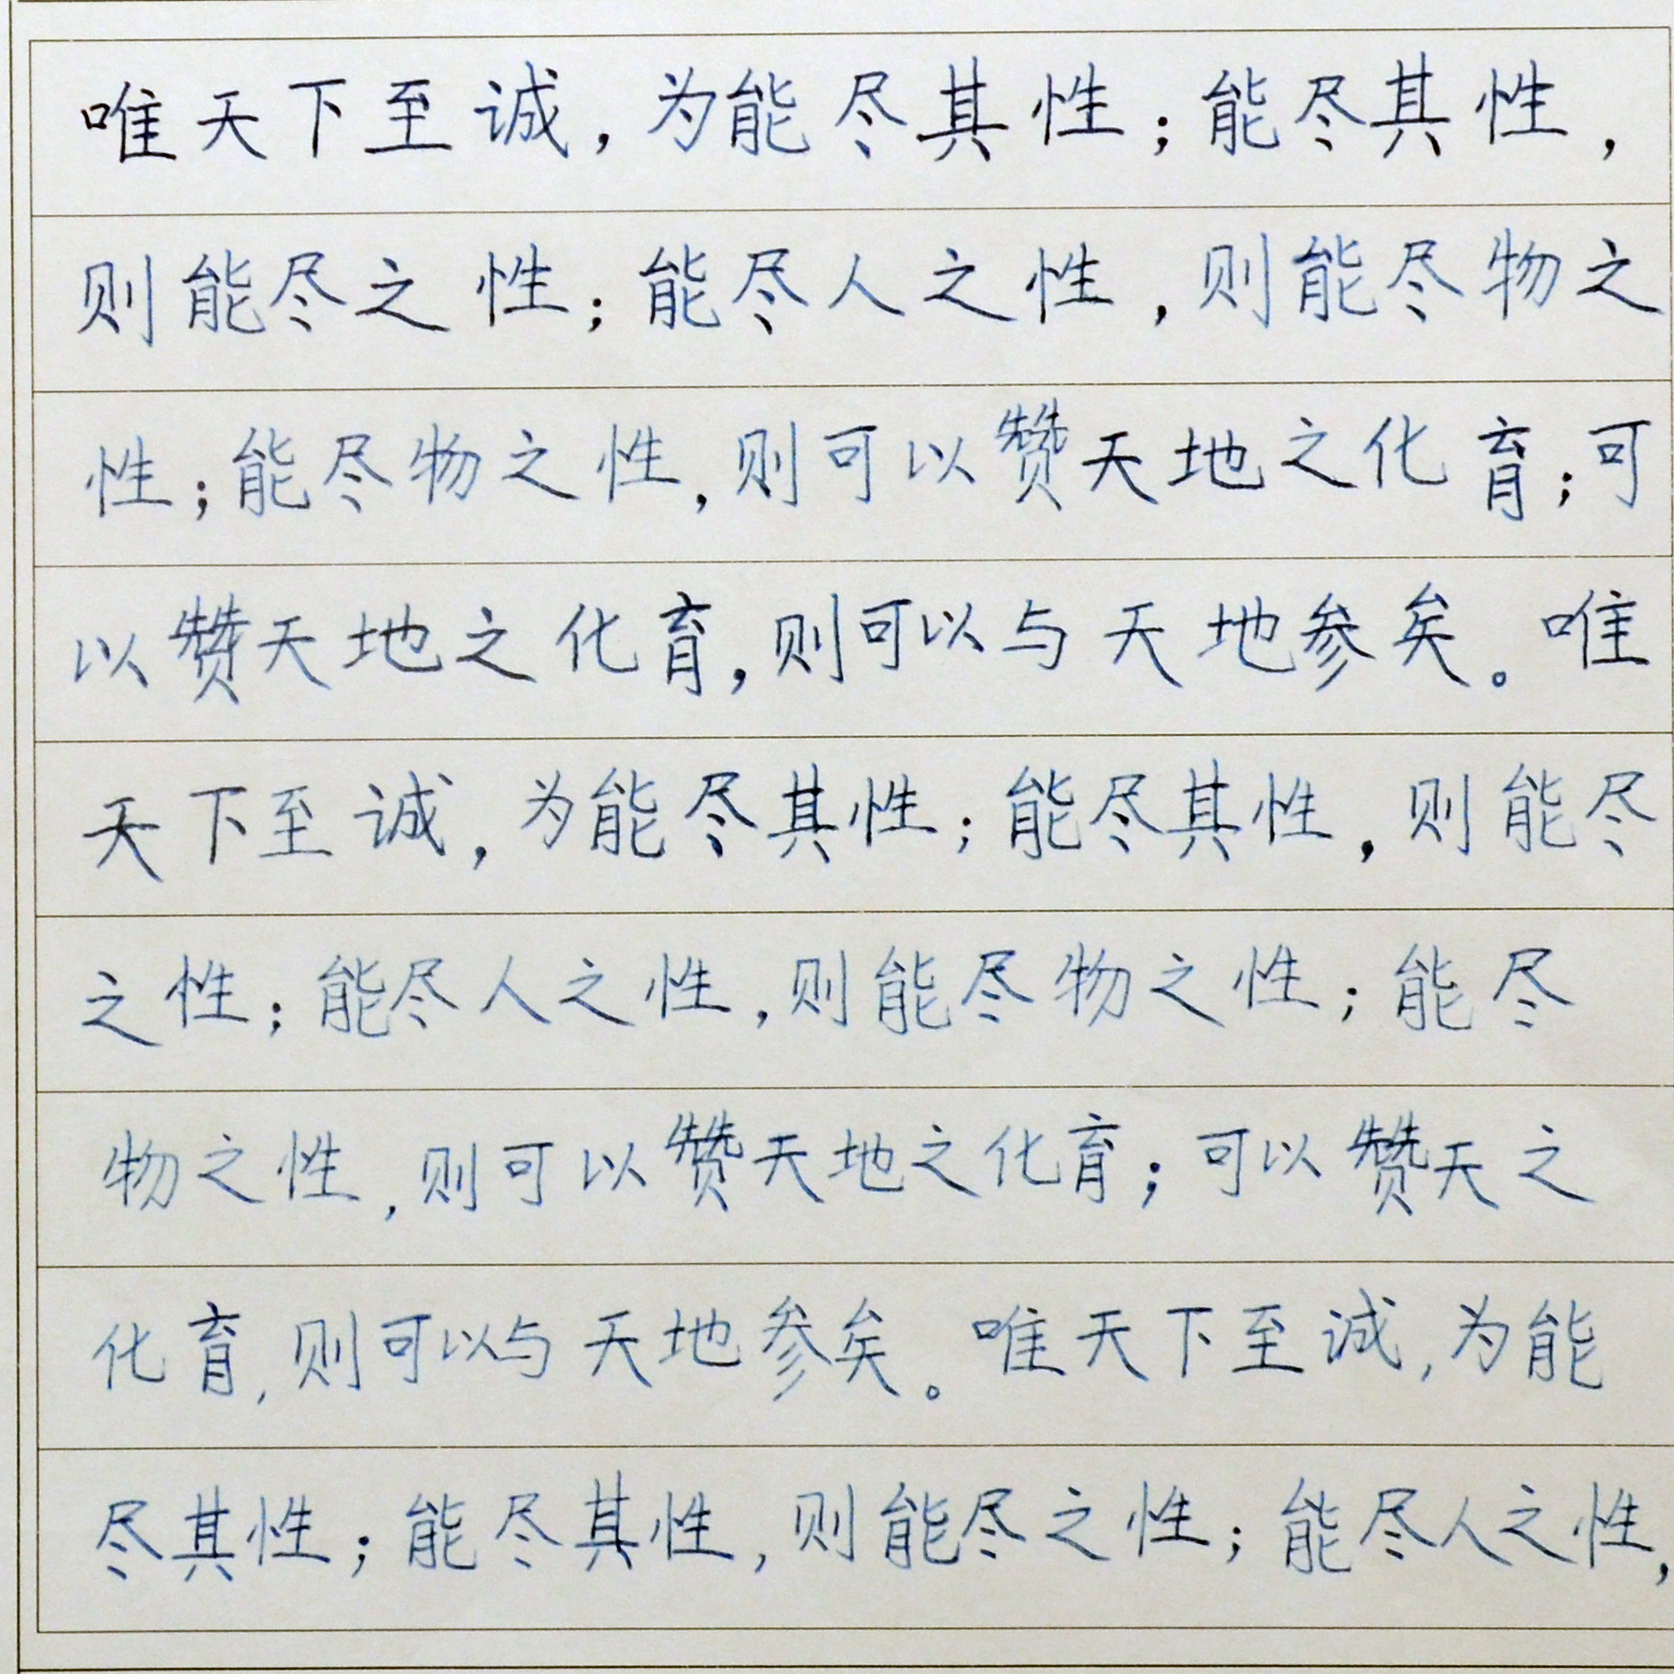 唯天下至诚，为能尽其性；能尽其性，
则能尽之性；能尽人之性，则能尽物之
性；能尽物之性，则可以赞天地之化育；可
以赞天地之化育，则可以与天地参矣。唯
天下至诚，为能尽其性；能尽其性，则能尽
之性；能尽人之性，则能尽物之性；能尽
物之性，则可以赞天地之化育；可以赞天之
化育，则可以与天地参矣。唯天下至诚，为能
尽其性；能尽其性，则能尽之性；能尽人之性，